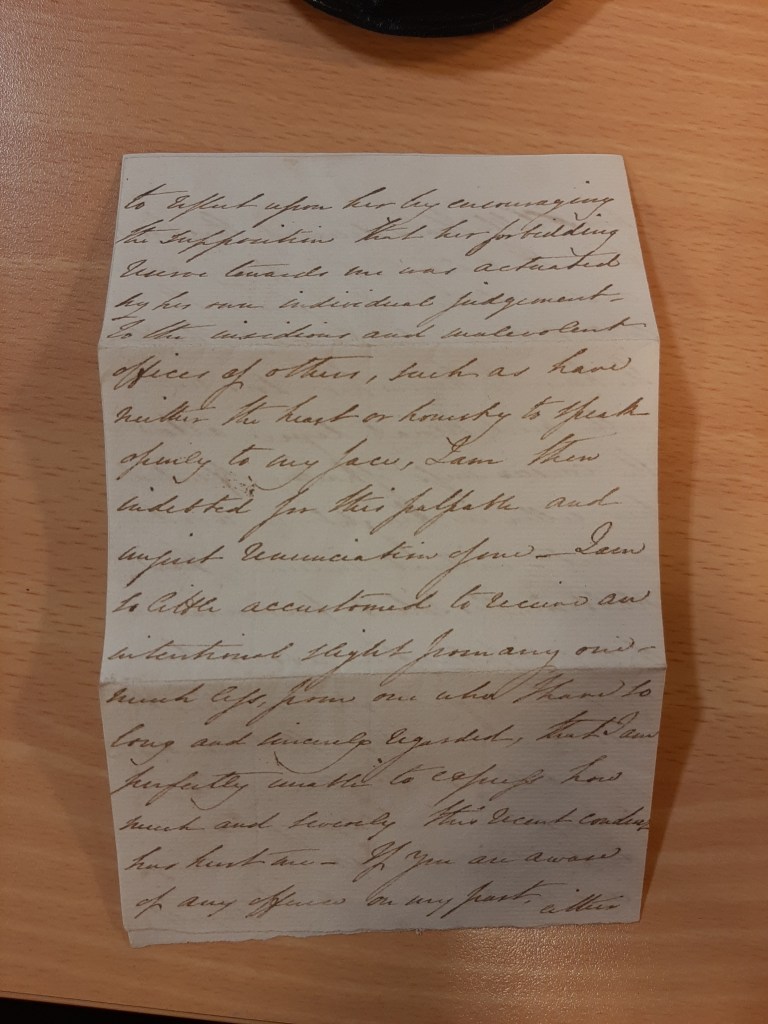 to reflect upon her by encouraging
the supposition that her forbidding
reserve towards me was actuated
by her own individual judgement –
To the insidious and malevolent
offices of others, such as have
neither the heart or honesty to speak
openly to my face, I am then
indebted for this palpable and
august renunciation of me – I am
so little accustomed to receive an
intentional slight from any one –
much less, from one who I have so
long and sincerely regarded, that I am
perfectly unable to express how
much and severely this recent conduct
has hurt me – If you are aware
of any offence on my part, either